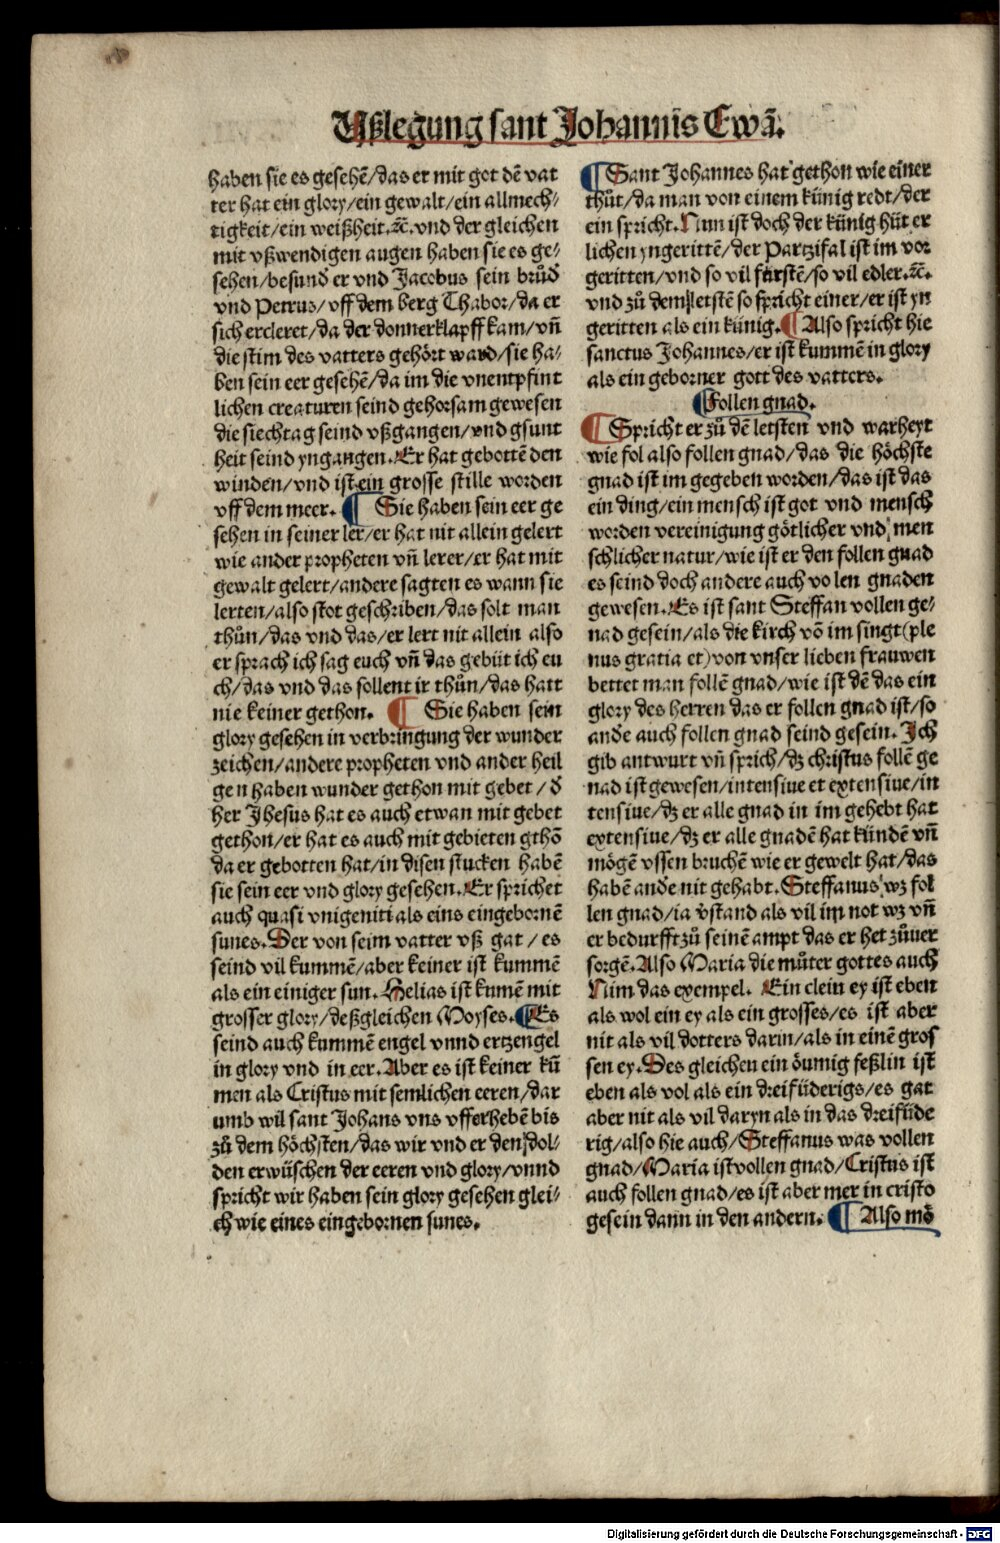 Vßlegung sant Johannis Ewã.
haben sie es gesehẽ/das er mit got dẽ vat
ter hat ein glory/ein gewalt/ein allmech⸗
tigkeit/ein weißheit.⁊c̃.vnd der gleichen
mit vßwendigen augen haben sie es ge⸗
sehen/besund er vnd Jacobus sein brůd̃
vnd Petrus/vff dem berg Thabor/da er
sich ercleret/da der donnerklapff kam/vñ
die stim des vatters gehört ward/sie ha⸗
ben sein eer gesehẽ/da im die vnentpfint
lichen creaturen seind gehorsam gewesen
die siechtag seind vßgangen/vnd gsunt
heit seind yngangen.Er hat gebottẽ den
winden/vnd ist ein grosse stille worden
vff dem meer. ¶ Sie haben sein eer ge
sehen in seiner ler/er hat nit allein gelert
wie ander propheten vñ lerer/er hat mit
gewalt gelert/andere sagten es wann sie
lerten/also stot geschriben/das solt man
thůn/das vnd das/er lert nit allein also
er sprach ich sag euch vñ das gebüt ich eu
ch/das vnd das sollent ir thůn/das hatt
nie keiner gethon. ¶ Sie haben sein
glory gesehen in verbringung der wunder
zeichen/andere propheten vnd ander heil
gen haben wunder gethon mit gebet/d̃
her Jhesus hat es auch etwan mit gebet
gethon/er hat es auch mit gebieten gthõ
da er gebotten hat/in disen stucken habẽ
sie sein eer vnd glory gesehen.Er sprichet
auch quasi vnigeniti als eins eingebornẽ
sunes.Der von seim vatter vß gat/es
seind vil kummẽ/aber keiner ist kummẽ
als ein einiger sun.Helias ist kumẽ mit
grosser glory/deßgleichen Moyses.¶Es
seind auch kummẽ engel vnnd ertzengel
in glory vnd in eer.Aber es ist keiner kũ
men als Cristus mit semlichen eeren/dar
umb wil sant Johans vns vfferhebẽ bis
zů dem höchsten/das wir vnd er den dol⸗
den erwüschen der eeren vnd glory/vnnd
spricht wir haben sein glory gesehen glei⸗
ch wie eines eingebornen sunes.
¶Sant Johannes hat gethon wie einer
thůt/da man von einem künig redt/der
ein spricht.Nun ist doch der künig hüt er
lichen yngerittẽ/der Partzifal ist im vor
geritten/vnd so vil fürstẽ/so vil edler.⁊c̃.
vnd zů dem letstẽ so spricht einer/er ist yn
geritten als ein künig.¶Also spricht hie
sanctus Johannes/er ist kummẽ in glory
als ein geborner gott des vatters.
¶Follen gnad.
¶Spricht er zů dẽ letsten vnd warheyt
wie fol also follen gnad/das die höchste
gnad ist im gegeben worden/das ist das
ein ding/ein mensch ist got vnd mensch
worden vereinigung götlicher vnd men
schlicher natur/wie ist er den follen gnad
es seind doch andere auch vo len gnaden
gewesen.Es ist sant Steffan vollen ge⸗
nad gesein/als die kirch võ im singt(ple
nus gratia et)von vnser lieben frauwen
bettet man follẽ gnad/wie ist dẽ das ein
glory des herren das er follen gnad ist/so
andẽ auch follen gnad seind gesein.Jch
gib antwurt vñ sprich/dz christus follẽ ge
nad ist gewesen/intensiue et extensiue/in
tensiue/dz er alle gnad in im gehebt hat
extensiue/dz er alle gnadẽ hat kündẽ vñ
mögẽ vssen bruchẽ wie er gewelt hat/das
habẽ andẽ nit gehabt.Steffanus wz fol
len gnad/ia v̓stand als vil im not wz vñ
er bedurfft zů seinẽ ampt das er het zůuer
sorgẽ.Also Maria die můter gottes auch
Nim das exempel. Ein clein ey ist eben
als wol ein ey als ein grosses/es ist aber
nit als vil dotters darin/als in einẽ gros
sen ey.Des gleichen ein öumig feßlin ist
eben als vol als ein dreifüderigs/es gat
aber nit als vil daryn als in das dreifüde
rig/also hie auch/Steffanus was vollen
gnad/Maria ist vollen gnad/Cristus ist
auch follen gnad/es ist aber mer in cristo
gesein dann in den andern.¶ Also mö
Digitalisierung gefördert durch die Deutsche Forschungsgemeinschaft - DFG